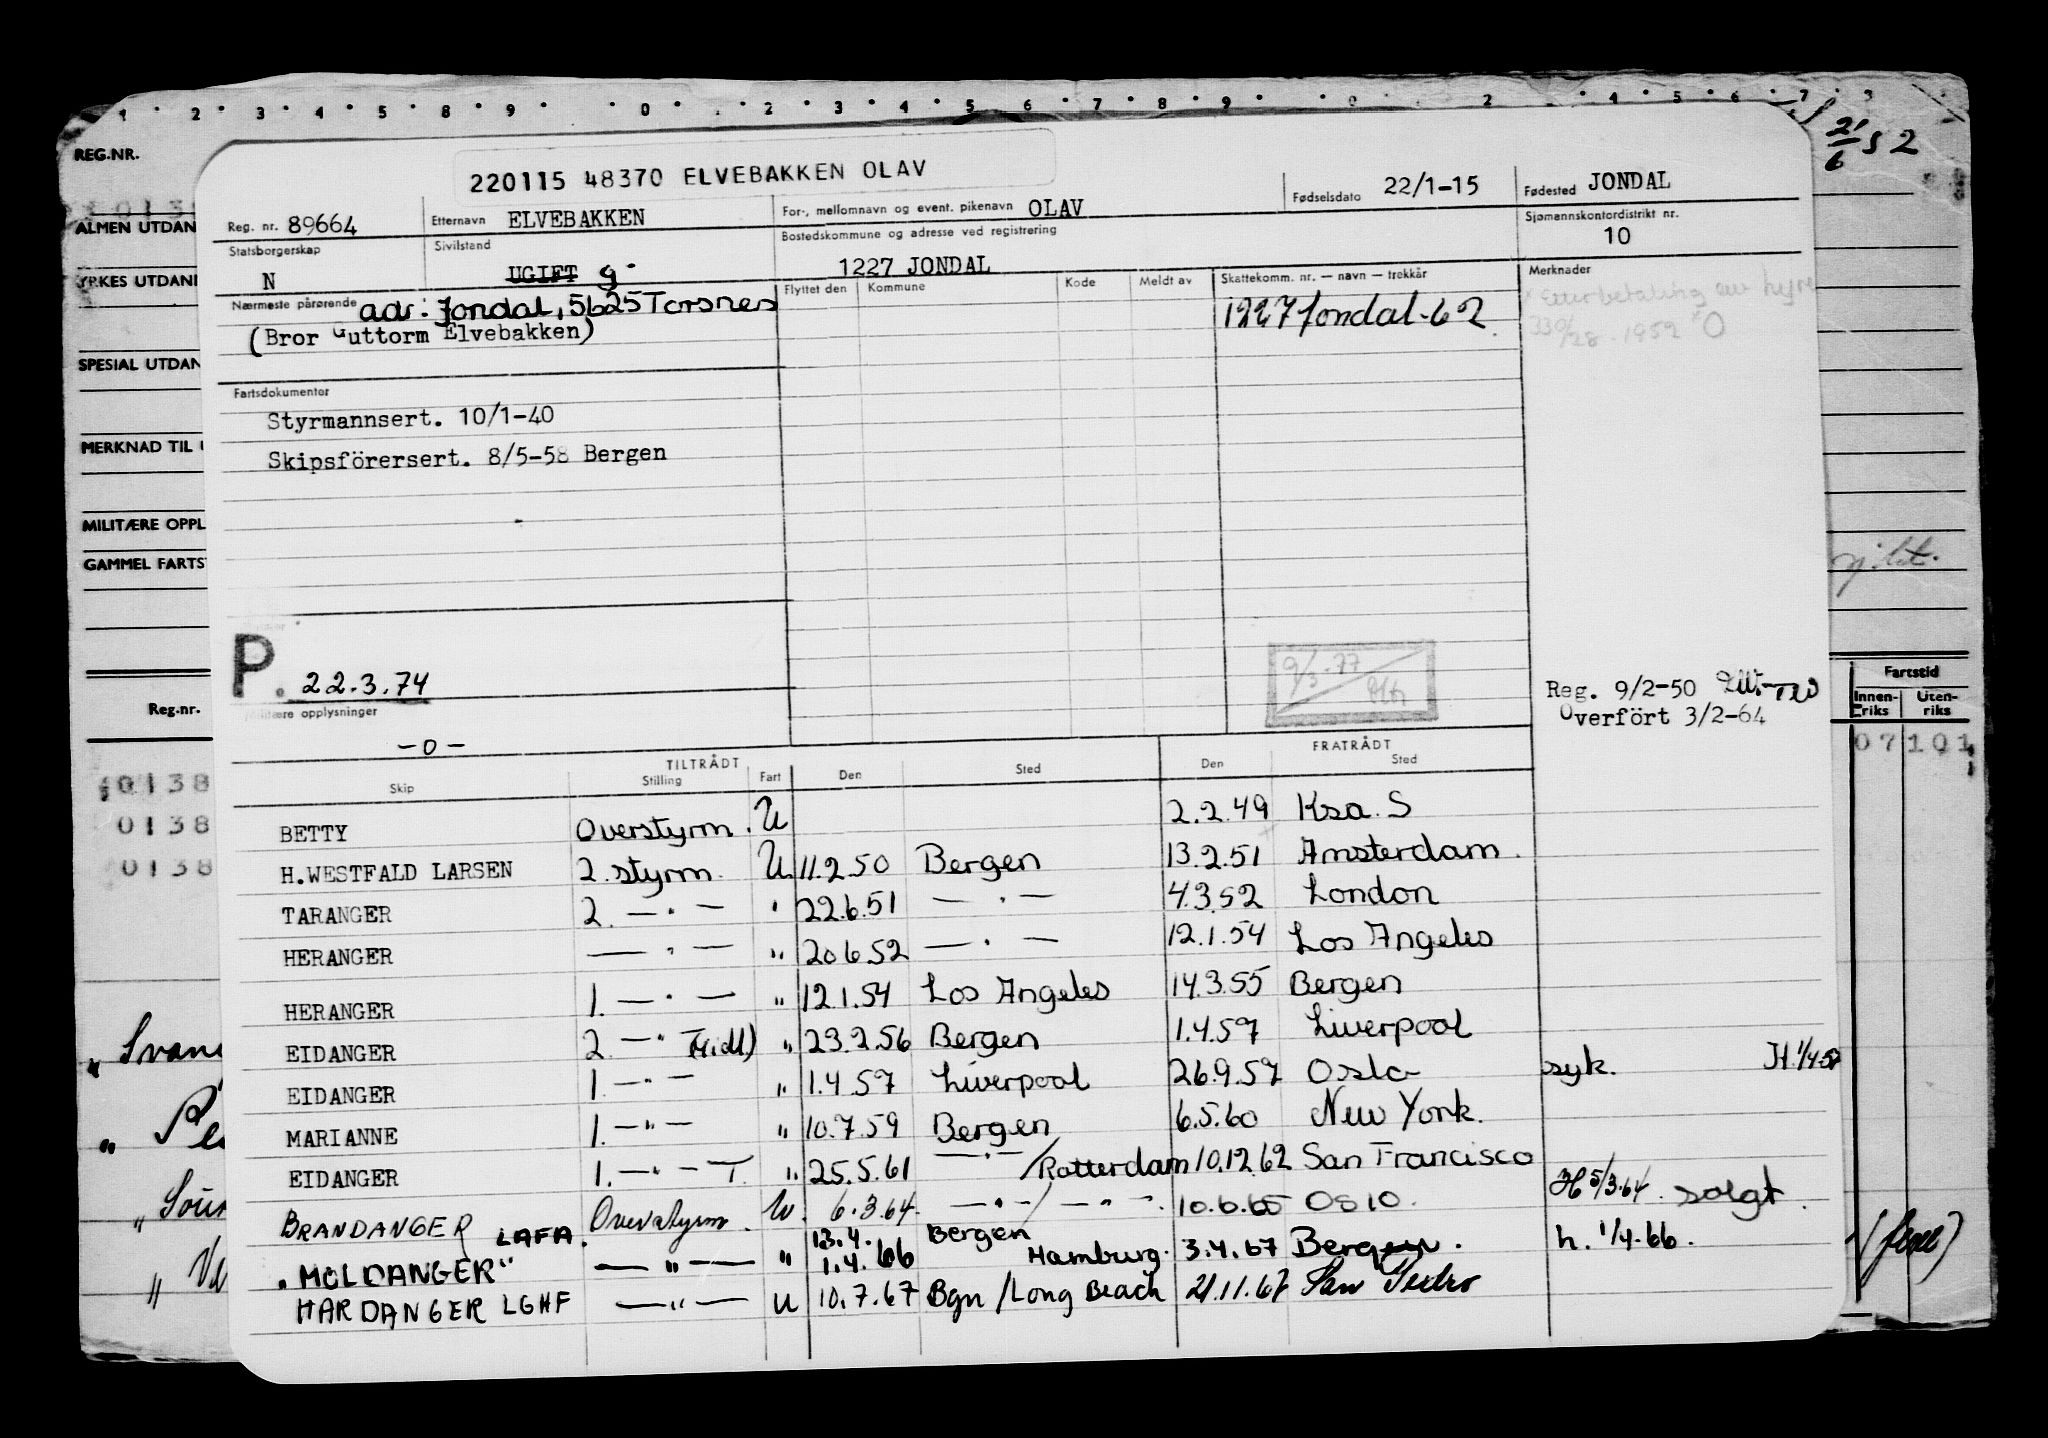 1 2 3 4 5 8 9 0 2 3 4 5 6 7 8 9 2 4 5 6 7 3
21/6 52
REG.NR.
220115 48370 ELVEBAKKEN OLAV
Fødselsdato 22/1-15
Fødested JONDAL
ALMEN UTDAN
Reg. nr. 89664
Etternavn ELVEBAKKEN
For-, mellomnavn og event. pikenavn OLAV
Sjømannskontordistrikt nr. 10
Statsborgerskap N
Sivilstand UGIFT g
Bostedskommune og adresse ved registrering
1227 JONDAL
YRKES UTDAN
Flyttet den Kommune Kode Meldt av Skattekomm. nr. — navn — trekkår Merknader
Nærmeste pårørende adr: Jondal, 5625 Torsnes
(Bror Guttorm Elvebakken)
1227 Jondal-62
SPESIAL UTDAN
Fartsdokumenter
Styrmannsert. 10/1-40
MERKNAD TIL
Skipsförersert. 8/5-58 Bergen
MILITÆRE OPPL
GAMMEL FARTS
P. 22.3.74
9/3-77
Reg. 9/2-50
Overfört 3/2-64
Fartstid
Innen-riks Uten-riks
Reg.nr.
Militære opplysninger
-o-
07 101
TILTRÅDT FRATRÅDT
Skip Stilling Fart Den Sted Den Sted
0138
0138
0138
BETTY Overstyrm. U 2.2.49 Ksa. S
H.WESTFALD LARSEN 2. styrm. U 11.2.50 Bergen 13.2.51 Amsterdam.
TARANGER 2. — " — " 22.6.51 — " — 4.3.52 London
HERANGER — " — " 20.6.52 — " — 12.1.54 Los Angeles
HERANGER 1. — " — " 12.1.54 Los Angeles 14.3.55 Bergen
EIDANGER 2. — " (midl) " 23.2.56 Bergen 1.4.57 Liverpool
EIDANGER 1. — " — " 1.4.57 Liverpool 26.9.57 Oslo syk. H. 1/4-57
MARIANNE 1. — " — " 10.7.59 Bergen 6.5.60 New York.
EIDANGER 1. — " — T. " 25.5.61 — " — /Rotterdam 10.12.62 San Francisco
BRANDANGER LAFA. Overstyrm. U. 6.3.64. — " — / — " — 10.6.65 Oslo. H 5/3-64. solgt.
"MOLDANGER" — " — " 13.4. 1.4.66 Bergen / Hamburg. 3.4.67 Bergen. h. 1/4-66.
HARDANGER LGHF — " — U 10.7.67 Bgn / Long Beach 21.11.67 San Pedro